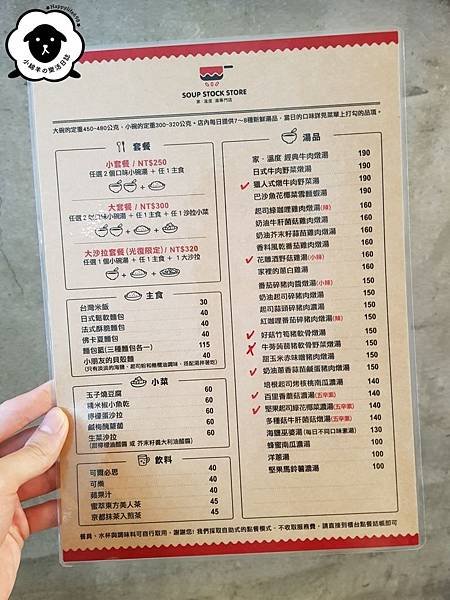 ●Happylife450●
小綿羊の樂活日誌
SOUP STOCK STORE
家．溫度 湯專門店
大碗約定重450-480公克，小碗約定重300-320公克。店內每日提供7～8種新鮮湯品，當日的口味詳見菜單上打勾的品項。
套餐
小套餐 / NT$250
任選 2 個口味小碗湯 ＋ 任 1 主食
大套餐 / NT$300
任選 2 口味小碗湯 ＋ 任 1 主食 ＋ 任 1 沙拉小菜
大沙拉套餐(光復限定) / NT$320
任選 1 個小碗湯 ＋ 任 1 主食 ＋ 1 大沙拉
主食
台灣米飯 30
日式鬆軟麵包 40
法式酥脆麵包 40
佛卡夏麵包 40
麵包籃(三種麵包各一) 115
小朋友的貝殼麵 40
小菜
玉子燒豆腐 60
糯米椒小魚乾 60
檸檬蛋沙拉 60
鹹梅醃蘿蔔 60
生菜沙拉 60
(甜檸檬油醋醬 或 芥末籽義大利油醋醬)
飲料
可爾必思 40
可樂 40
蘋果汁 40
蜜翠東方美人茶 45
京都抹茶入煎茶 45
湯品
家．溫度 經典牛肉燉湯 190
日式牛肉野菜燉湯 190
獵人式燉牛肉野菜湯 190
巴沙魚花椰菜雪麵蝦湯 190
起司綠咖哩雞肉燉湯(辣) 160
奶油牛肝菌菇雞肉燉湯 160
奶油芥末籽蒜苗雞肉燉湯 160
香料風乾番茄雞肉燉湯 160
花雕酒野菇雞湯(小辣) 160
家裡的蔥白雞湯 160
番茄碎豬肉醬燉湯(小辣) 150
奶油起司碎豬肉燉湯 150
起司蒜頭碎豬肉濃湯 150
紅咖哩番茄碎豬肉燉湯(辣) 150
好菇竹筍豬軟骨燉湯 150
牛蒡蒟蒻豬軟骨野菜燉湯 150
甜玉米赤味噌豬肉燉湯 150
奶油茴香蒜苗鹹蛋豬肉燉湯 150
培根起司烤核桃南瓜濃湯 150
百里香蘑菇濃湯(五辛素) 130
堅果起司綠花椰菜濃湯(五辛素) 130
多種菇牛肝菌菇燉湯(五辛素) 130
海鹽巫婆湯(每日不同口味素湯) 130
蜂蜜南瓜濃湯 130
洋蔥湯 130
堅果馬鈴薯濃湯 100
餐具、水杯與調味料可自行取用，謝謝您! 我們採取自助式的點餐模式，不收取服務費，請直接到櫃台點餐結帳即可